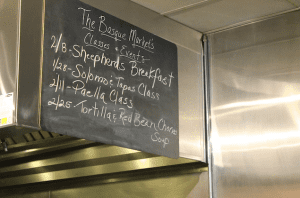 The Basque Market's
Classes & Events
2/8 - Shepherd's Breakfast
1/28 - Solomo & Tapas Class
2/11 - Paella Class
2/25 - Tortilla & Red Bean Chorizo
Soup